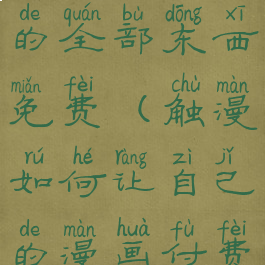 de quán bù dōng xī
的全部东西
miǎn fèi chù màn
免费(触漫
rú hé ràng zì jǐ
如何让自己
de màn huà fù fèi
的漫画付费